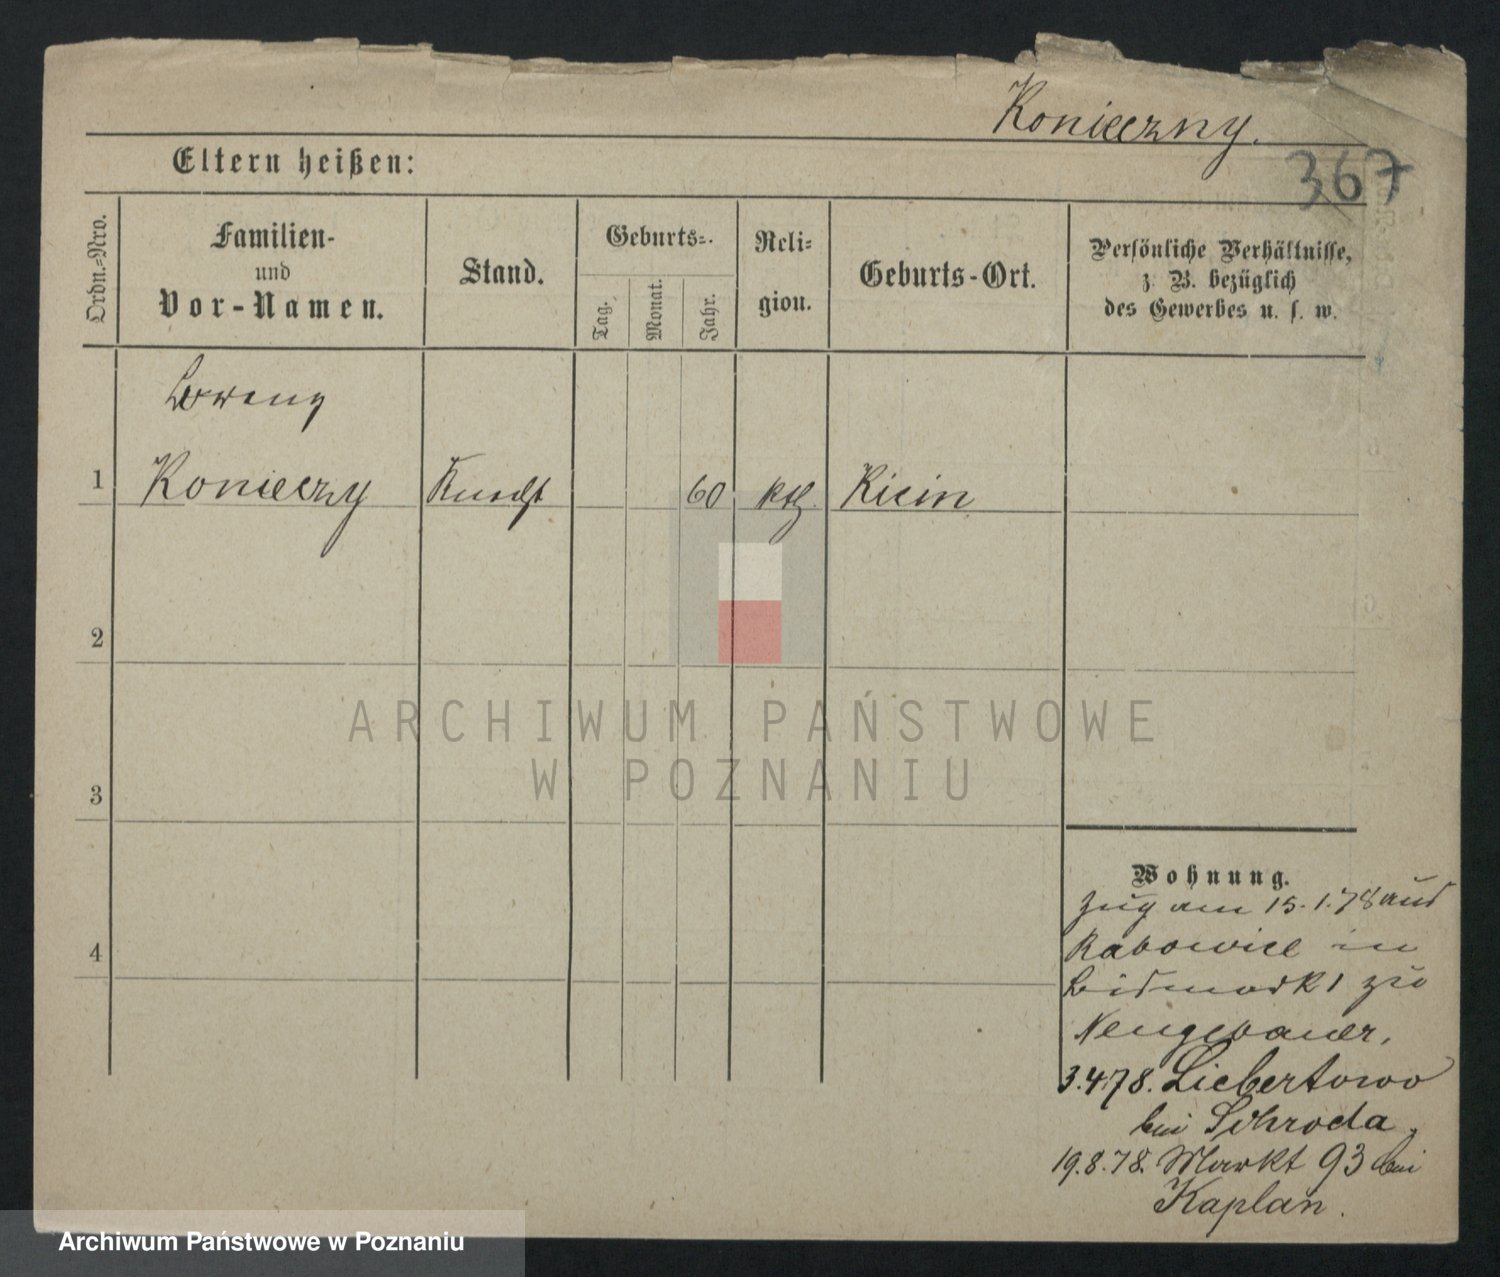 Konieczny.
367
Eltern heißen:
Ordn.-Nro.
Familien-
und
Vor-Namen.
Stand.
Geburts-
Tag.
Monat.
Jahr.
Reli-
gion.
Geburts-Ort.
Persönliche Verhältnisse,
z. B. bezüglich
des Gewerbes u. s. w.
Lorenz
1 Konieczny Knecht 60 kth. Kicin
2
3
4
ARCHIWUM PAŃSTWOWE
W POZNANIU
Wohnung.
Zug am 15.1.78 aus
Rabowice in
zu
Neugebauer.
3.4.78. Liebertowo
bei Schroda.
19.8.78. Markt 93 bei
Kaplan.
Archiwum Państwowe w Poznaniu